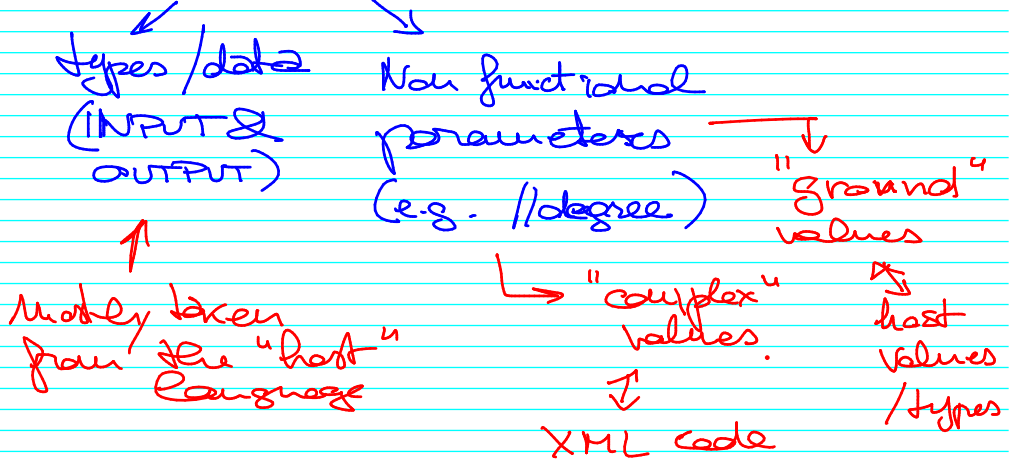 types/data
(INPUT &
OUTPUT)
Non functional
parameters
(e.g. //degree)
"ground"
values
Mostly taken
from the "host"
language
"complex"
values.
host
values
/types
XML code